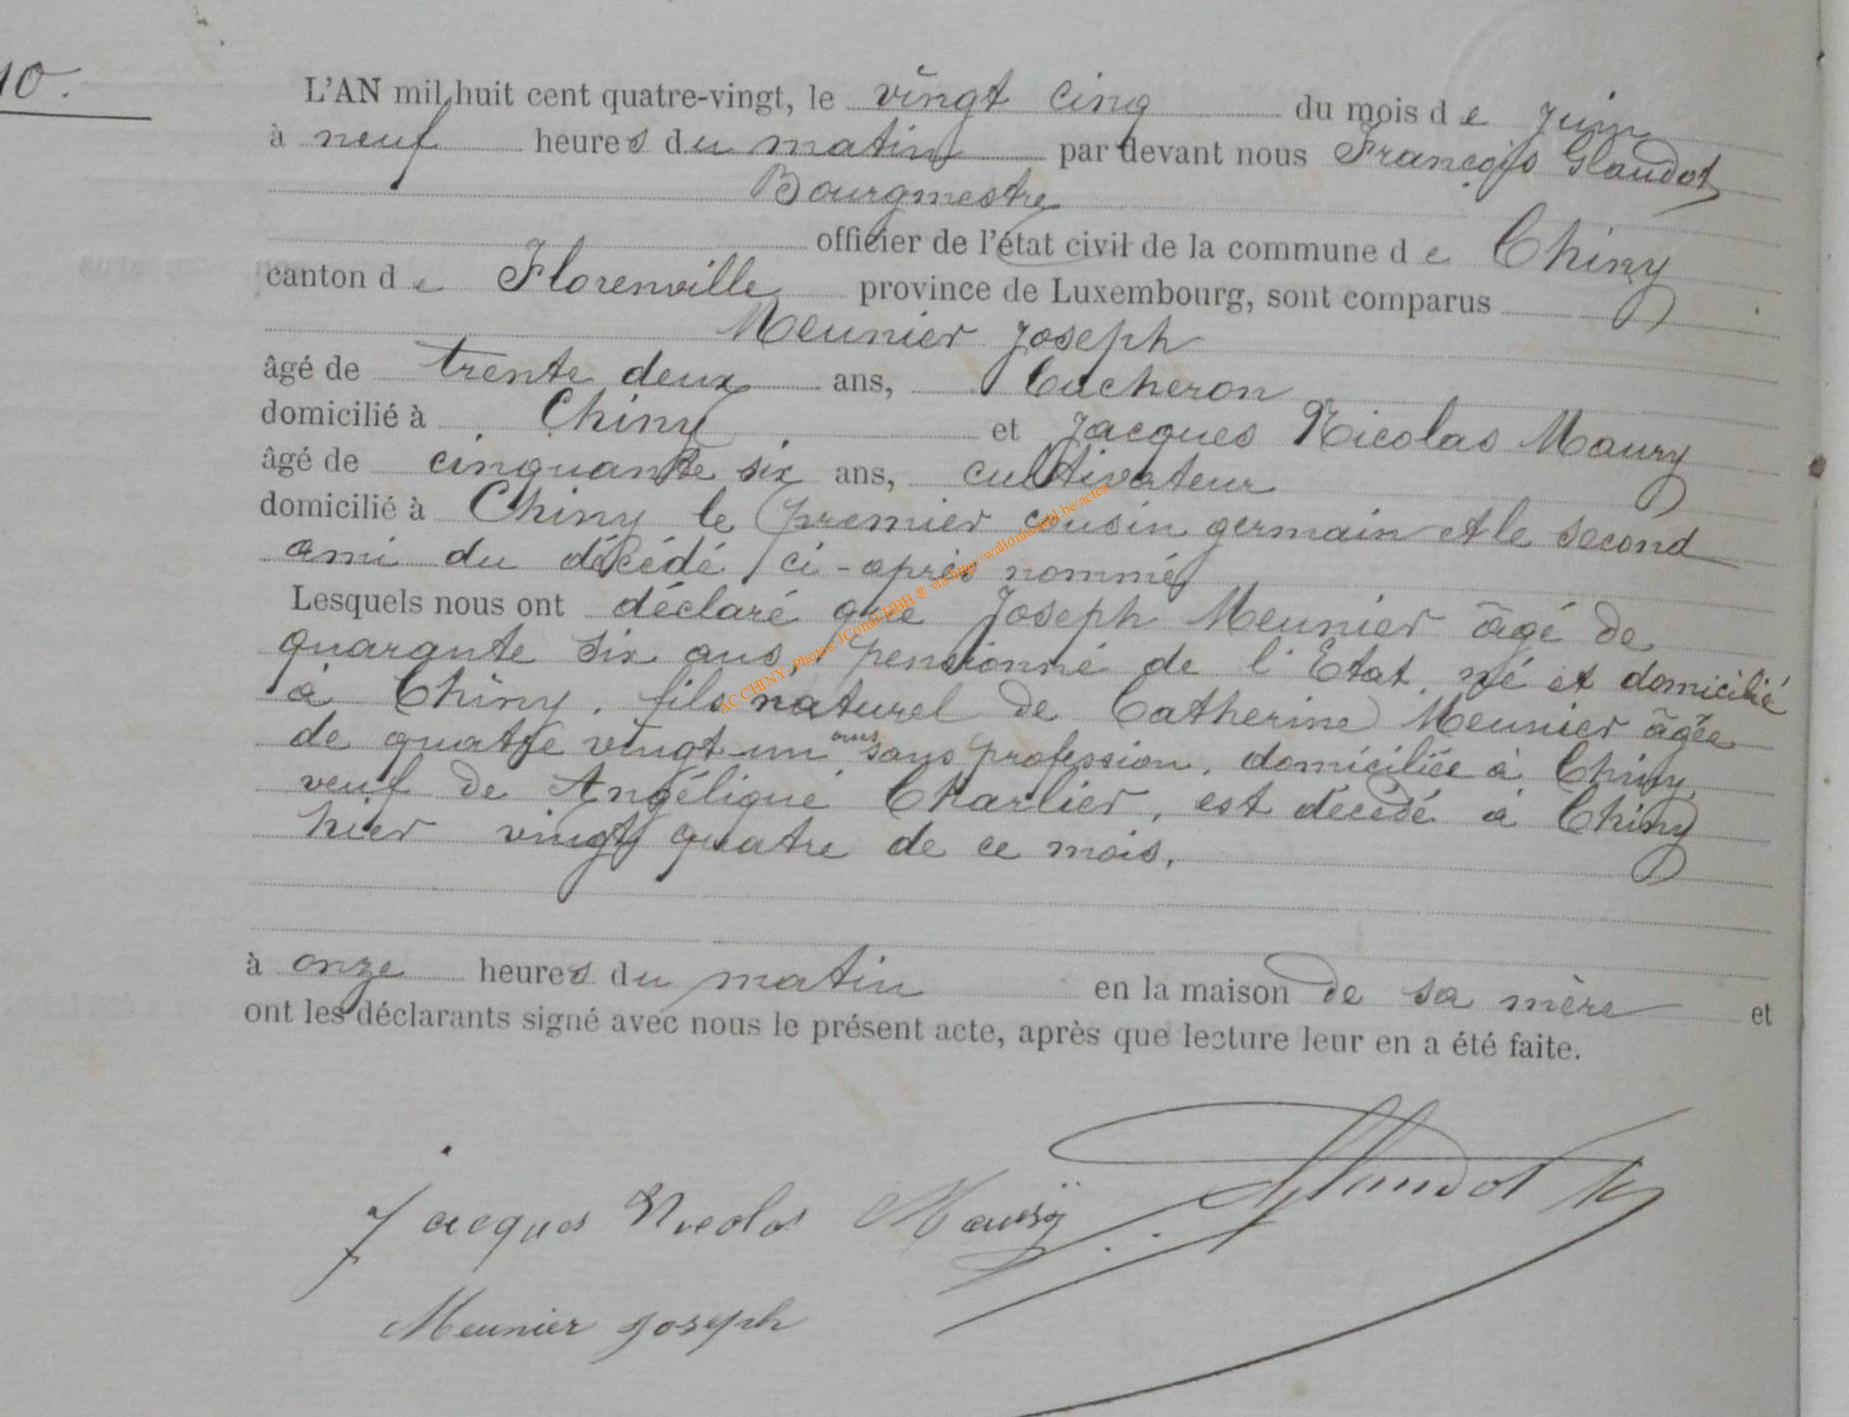 10.
L'AN mil huit cent quatre-vingt, le vingt cinq du mois de Juin
à neuf heures du matin par devant nous François Glaudot
Bourgmestre
officier de l'état civil de la commune de Chiny
canton de Florenville province de Luxembourg, sont comparus
Meunier Joseph
âgé de trente deux ans, Bucheron
domicilié à Chiny et Jacques Nicolas Maury
âgé de cinquante six ans, cultivateur
domicilié à Chiny le premier cousin germain et le second
ami du décédé ci-après nommé
Lesquels nous ont déclaré que Joseph Meunier âgé de
quarante six ans, pensionné de l'Etat, né et domicilié
à Chiny, fils naturel de Catherine Meunier âgée
de quatre vingt-un ans sans profession, domiciliée à Chiny,
veuf de Angélique Charlier, est décédé à Chiny
hier vingt quatre de ce mois,
à onze heures du matin en la maison de sa mère et
ont les déclarants signé avec nous le présent acte, après que lecture leur en a été faite.
Jacques Nicolas Maury Glaudot
Meunier Joseph
AC CHINY- Photos JConil-HBH ® via http://wallonia-asbl.be/actes